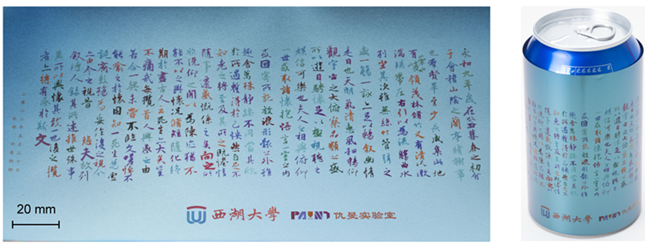 永和九年歲在癸丑暮春之初會
于會稽山陰之蘭亭脩稧事
也群賢畢至少長咸集此地
有崇山峻領茂林脩竹又有清流激
湍暎帶左右引以為流觴曲水
列坐其次雖無絲竹管弦之
盛一觴一詠亦足以暢敘幽情
是日也天朗氣清惠風和暢仰
觀宇宙之大俯察品類之盛
所以遊目騁懷足以極視聽之
娛信可樂也夫人之相與俯仰
一世或取諸懷抱悟言一室之內
或因寄所託放浪形骸之外雖
趣舍萬殊靜躁不同當其欣
於所遇蹔得於己快然自足不
知老之將至及其所之既惓情
隨事遷感慨係之矣向之所
欣俛仰之閒以為陳跡猶不
能不以之興懷況脩短隨化終
期於盡古人云死生亦大矣豈
不痛哉每攬昔人興感之由
若合一契未嘗不臨文嗟悼不
能喻之於懷固知一死生為虛
誕齊彭殤為妄作後之視今
亦由今之視昔 悲夫故列
敘時人錄其所述雖世殊事
異所以興懷其致一也後之攬
者亦將有感於斯文
20 mm
西湖大學
PAINT 仇旻实验室